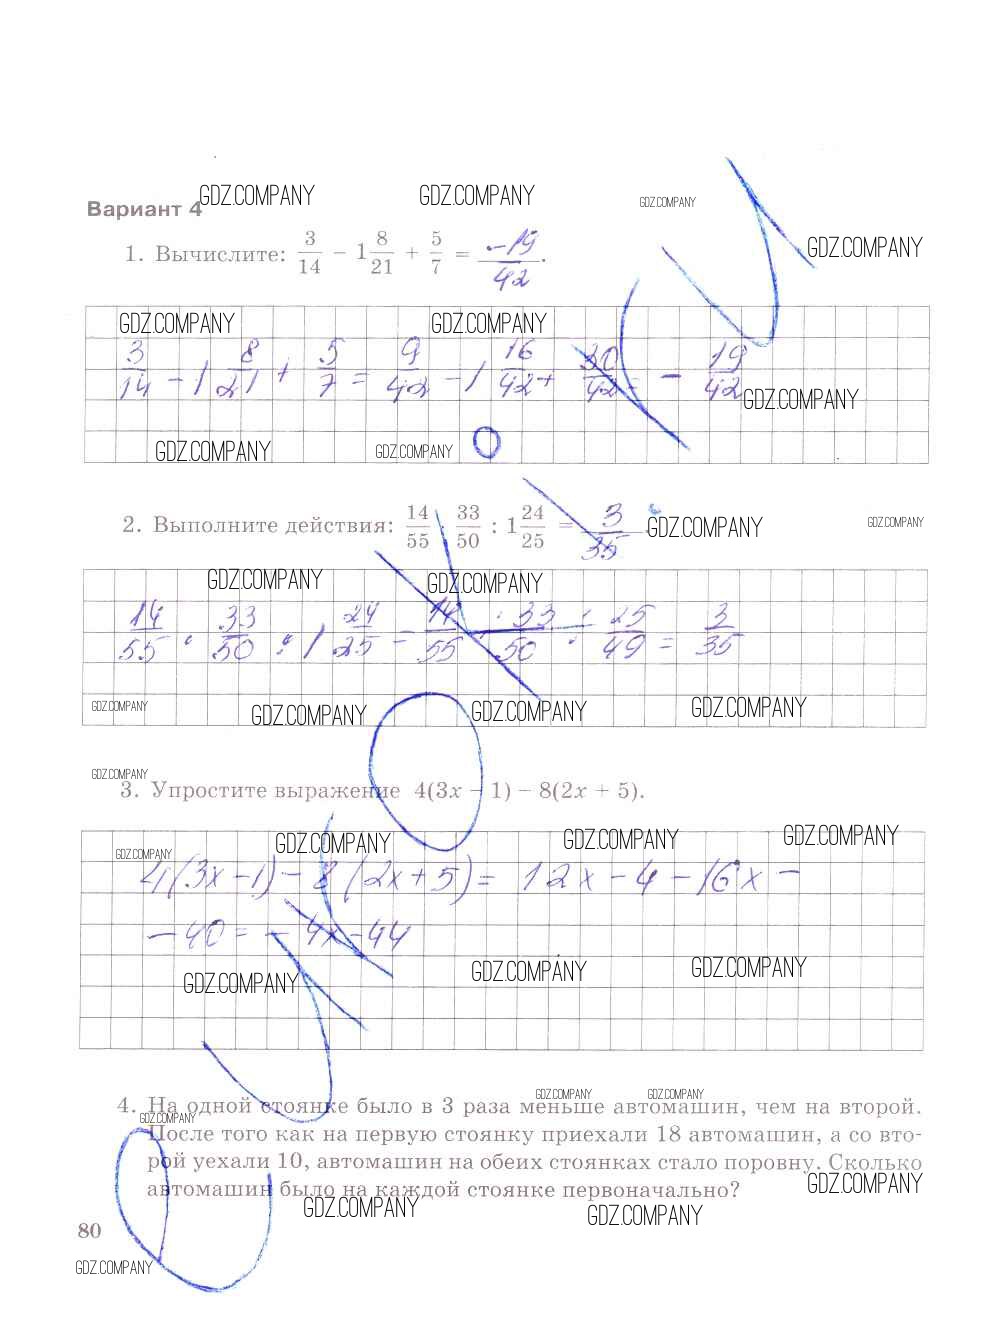 GDZ.COMPANY GDZ.COMPANY GDZ.COMPANY
Вариант 4
GDZ.COMPANY
1. Вычислите: 3/14 − 1 8/21 + 5/7 = −19/42.
GDZ.COMPANY GDZ.COMPANY
3/14 − 1 8/21 + 5/7 = 9/42 − 1 16/42 + 30/42 = − 19/42
GDZ.COMPANY
GDZ.COMPANY GDZ.COMPANY
2. Выполните действия: 14/55 · 33/50 : 1 24/25 = 3/35
GDZ.COMPANY GDZ.COMPANY
GDZ.COMPANY GDZ.COMPANY
14/55 · 33/50 : 1 24/25 = 14/55 · 33/50 · 25/49 = 3/35
GDZ.COMPANY GDZ.COMPANY GDZ.COMPANY GDZ.COMPANY
GDZ.COMPANY
3. Упростите выражение 4(3x − 1) − 8(2x + 5).
GDZ.COMPANY GDZ.COMPANY GDZ.COMPANY GDZ.COMPANY
4(3x−1) − 8(2x+5) = 12x − 4 − 16x −
− 40 = − 4x − 44
GDZ.COMPANY GDZ.COMPANY GDZ.COMPANY
GDZ.COMPANY GDZ.COMPANY
4. На одной стоянке было в 3 раза меньше автомашин, чем на второй.
GDZ.COMPANY
После того как на первую стоянку приехали 18 автомашин, а со вто-
рой уехали 10, автомашин на обеих стоянках стало поровну. Сколько
автомашин было на каждой стоянке первоначально?
GDZ.COMPANY
GDZ.COMPANY GDZ.COMPANY
80
GDZ.COMPANY